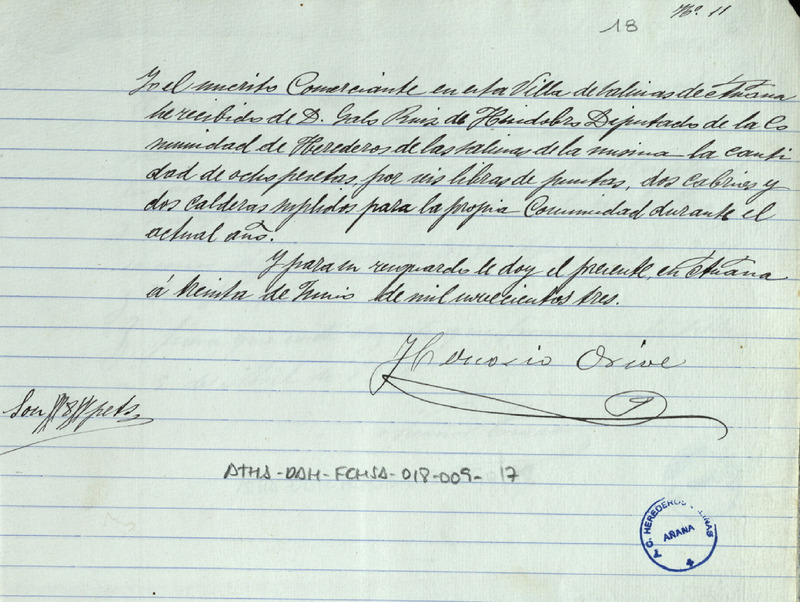 18 Nº. 11
Yo el inscrito Comerciante en esta Villa de Salinas de Añana
he recibido de D. Galo Ruiz de Huidobro Diputado de la Co
munidad de Herederos de las Salinas de la misma la canti
dad de ocho pesetas, por seis libras de puntas, dos cabrios y
dos calderas suplidos para la propia Comunidad durante el
actual año.
Y para su resguardo le doy el presente, en Añana
á treinta de Junio de mil novecientos tres.
Orive
Son 8 pets
ATHA-DAH-FCHSA-018-009-17
C. HEREDEROS
AÑANA